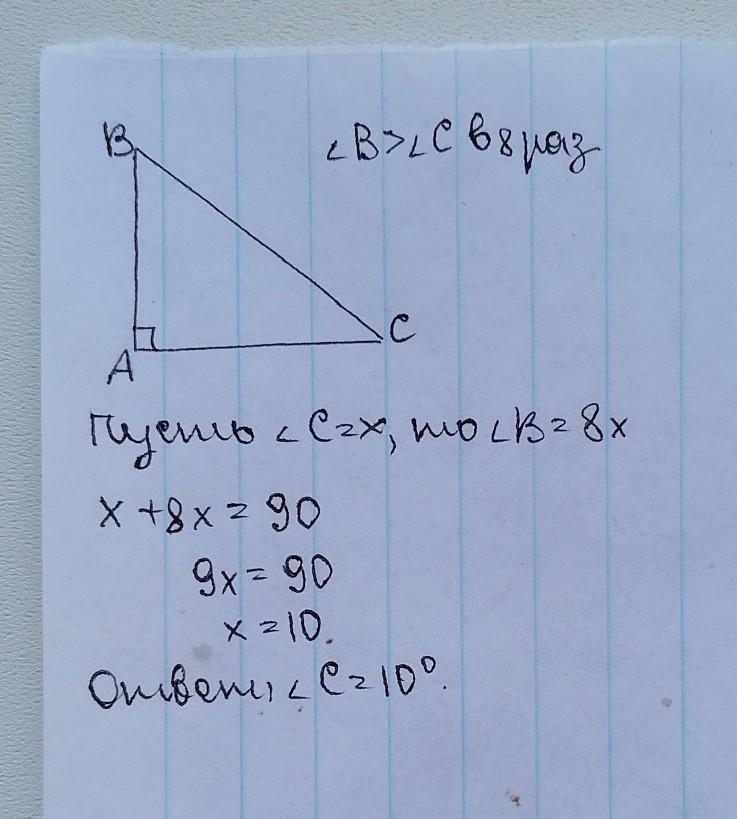 B
∠B>∠C в 8 раз
C
A
Пусть ∠C=x, то ∠B=8x
x+8x=90
9x=90
x=10.
Ответ: ∠C=10°.